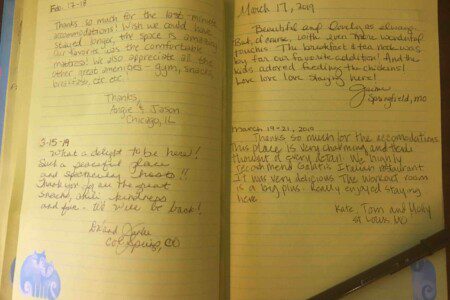 Feb. 17-18
Thanks so much for the last-minute
accommodations! Wish we could have
stayed longer, the space is amazing
Our favorite was the comfortable
mattress! We also appreciate all the
other great amenities - gym, snacks,
breakfast, etc etc!
Thanks,
Angie & Jason
Chicago, IL
3-15-19
What a delight to be here!
Such a peaceful place
and hosts!!
Thank you for the great
snacks, kindness
and fun. We will be back!
CO
March 17, 2019
Beautiful and lovely as always
But, of course, with even more wonderful
touches. The breakfast & tea nook was
by far our favorite addition! And the
kids adored feeding the chickens!
Love love love staying here!
Springfield, MO
March 19-21, 2019
Thanks so much for the accomodations
this place is very charming and
thought of every detail. We highly
recommend Italian restaurant
It was very delicious. The workout room
is a big plus. Really enjoyed staying
here
Kate, Tom and
St. Louis MO